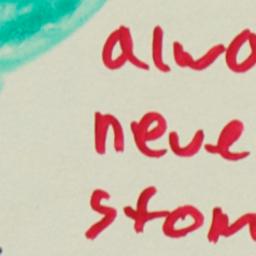 alwa
neve
stom